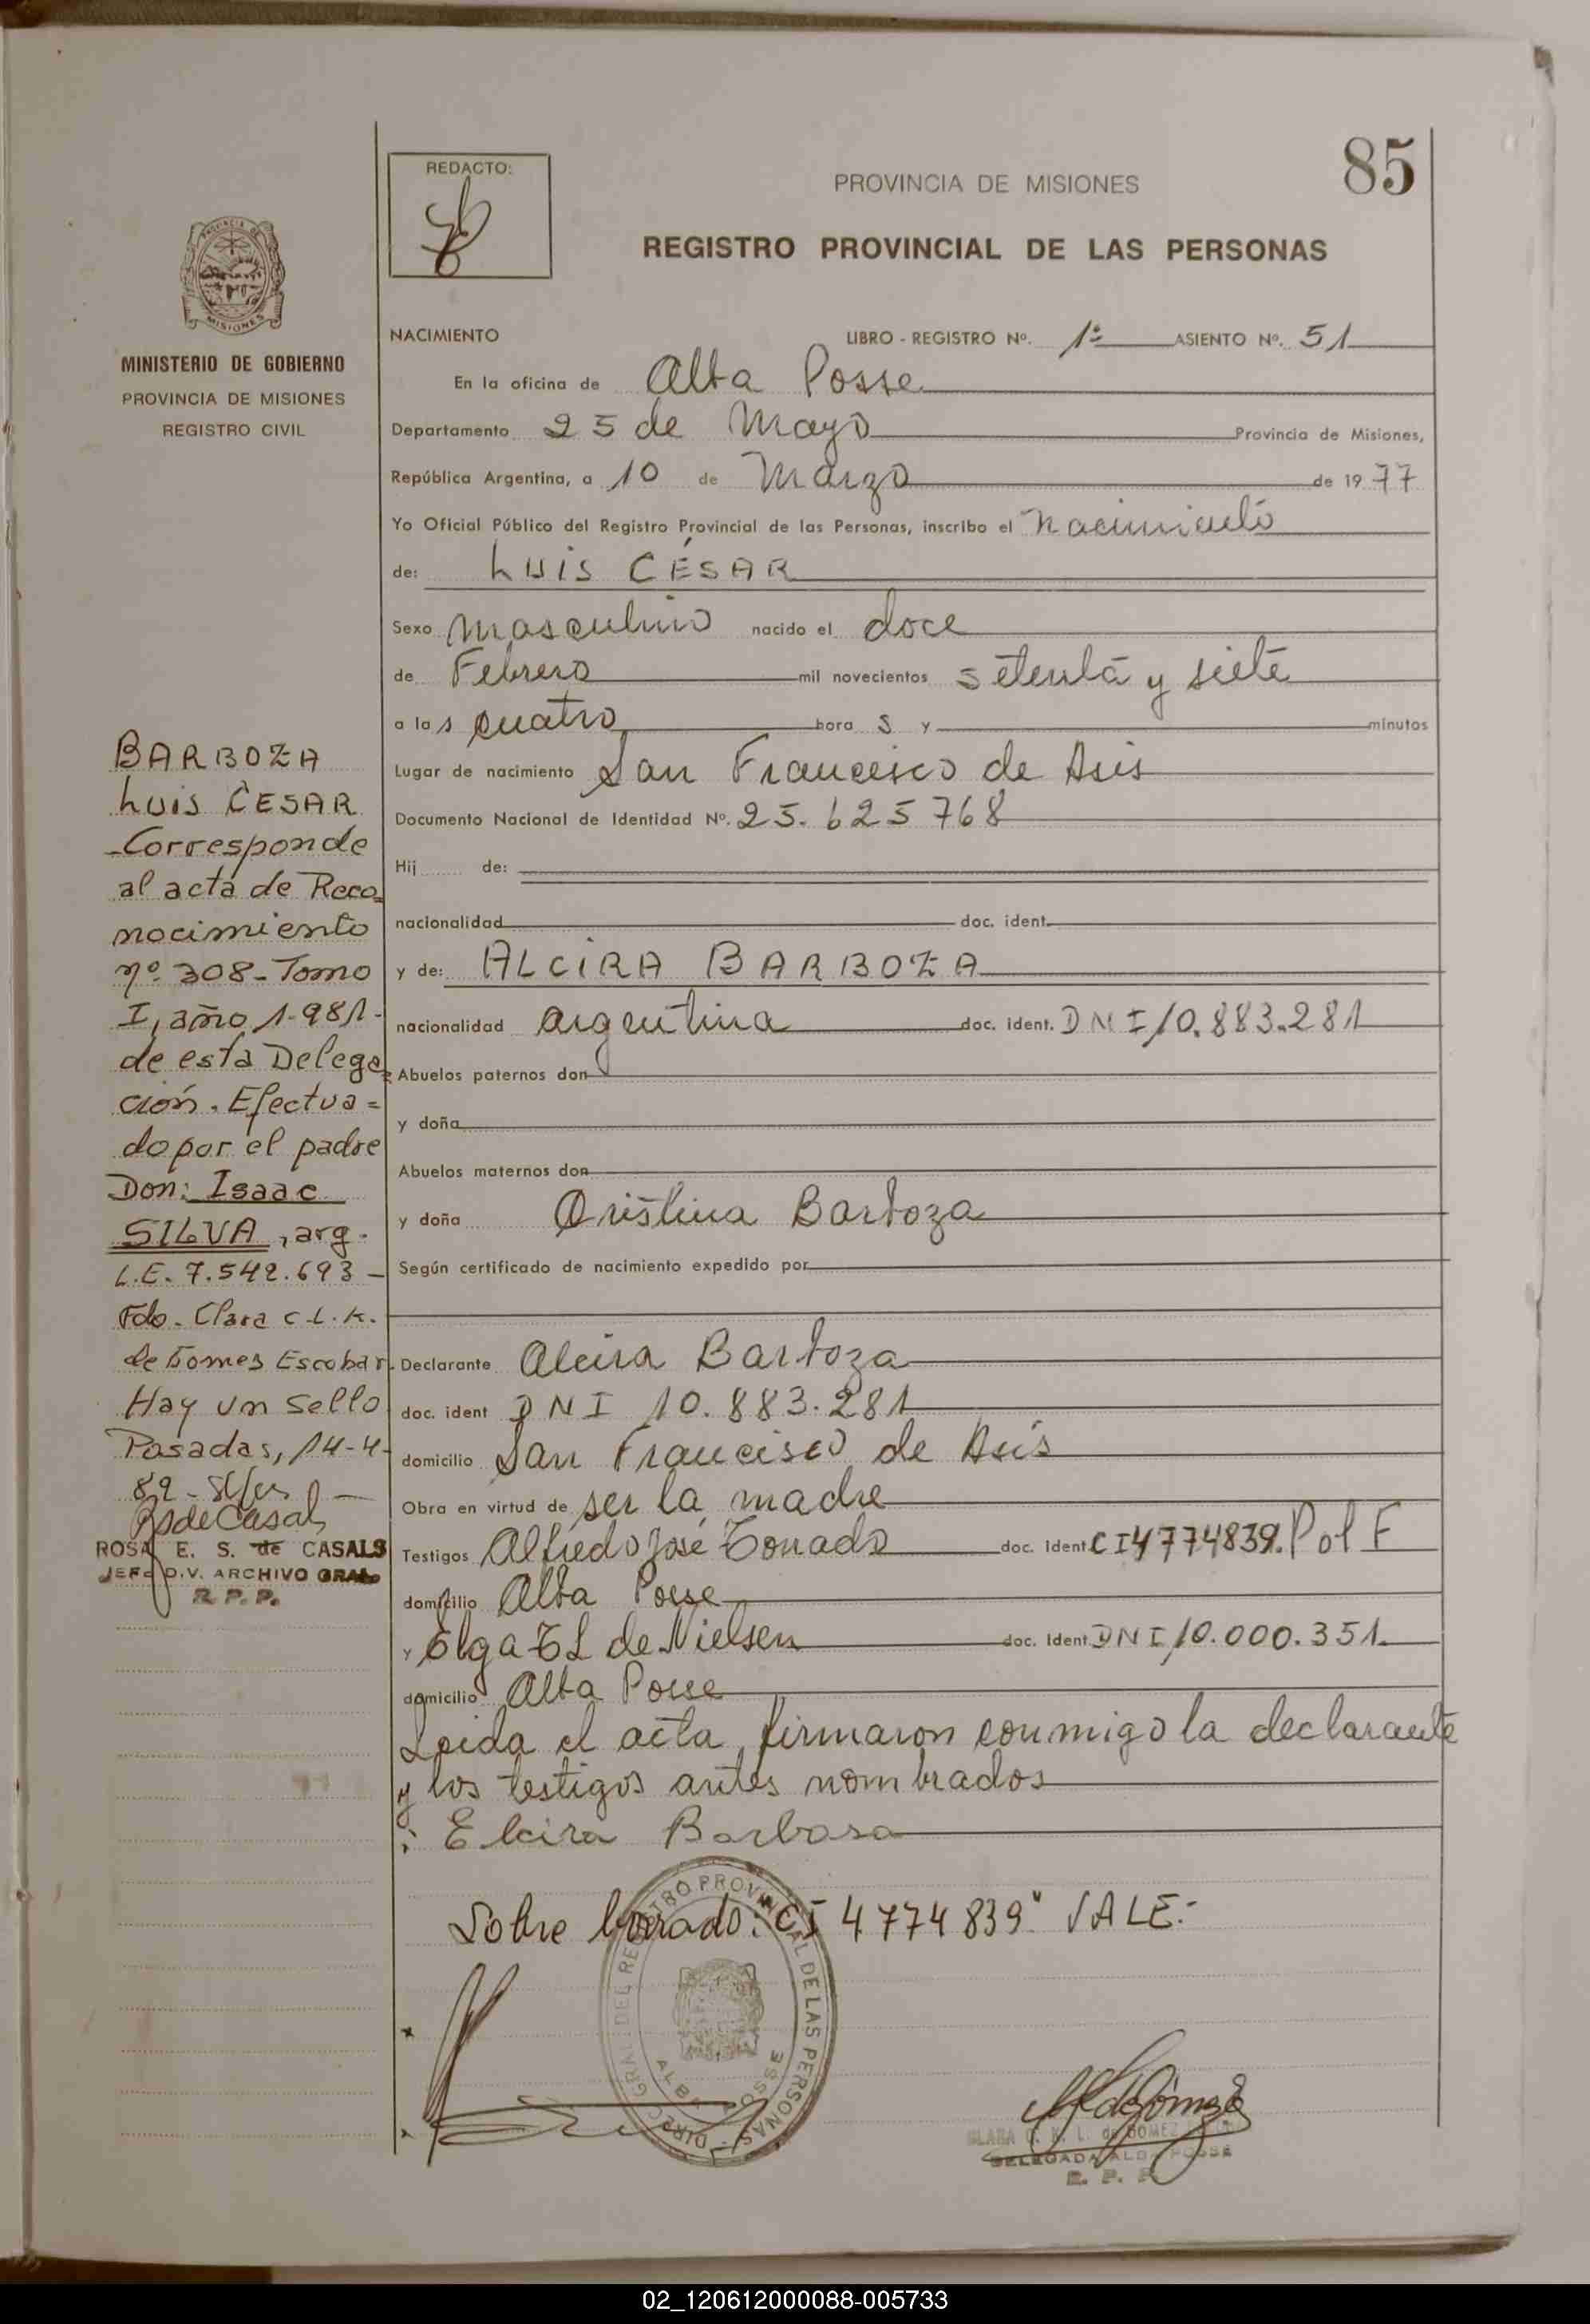 85
REDACTO:
PROVINCIA DE MISIONES
REGISTRO PROVINCIAL DE LAS PERSONAS
MINISTERIO DE GOBIERNO
PROVINCIA DE MISIONES
REGISTRO CIVIL
NACIMIENTO LIBRO - REGISTRO Nº. 1º ASIENTO Nº. 51
En la oficina de Alba Posse
Departamento 25 de Mayo Provincia de Misiones,
República Argentina, a 10 de Marzo de 1977
Yo Oficial Público del Registro Provincial de las Personas, inscribo el nacimiento
de: LUIS CÉSAR
Sexo masculino nacido el doce
de Febrero mil novecientos setenta y siete
a las cuatro horas y minutos
Lugar de nacimiento San Francisco de Asis
Documento Nacional de Identidad Nº. 25.625768
Hij de:
nacionalidad doc. ident.
y de: ALCIRA BARBOZA
nacionalidad argentina doc. ident. DNI 10.883.281
Abuelos paternos don
y doña
Abuelos maternos don
y doña Cristina Barboza
Según certificado de nacimiento expedido por
Declarante Alcira Barboza
doc. ident DNI 10.883.281
domicilio San Francisco de Asís
Obra en virtud de ser la madre
Testigos Alfredo José doc. ident CI 4774839. Pol F
domicilio Alba Posse
y Elga de Nielsen doc. Ident. DNI 10.000.351.
domicilio Alba Posse
Leida el acta, firmaron conmigo la declarante
y los testigos antes nombrados
Elcira Barbosa
Sobre borrado: "CI 4774839" VALE.-
BARBOZA
LUIS CESAR
-Corresponde
al acta de Reco=
nocimiento
nº 308-Tomo
I, año 1.981-
de esta Delega=
ción. Efectua=
do por el padre
Don: Isaac
SILVA, arg.
L.E. 7.542.693 -
Fdo. Clara C.L.K.
de Gomes Escobar.
Hay un sello
Posadas, 14-4-
82-
ROSA E. S. de CASALS
JEFE DIV. ARCHIVO GRAL
R. P. P.
DIREC. GRAL. DEL REGISTRO PROVINCIAL DE LAS PERSONAS
ALBA POSSE
CLARA C. K. L. de GOMEZ
DELEGADA ALBA POSSE
R. P. P.
02_120612000088-005733